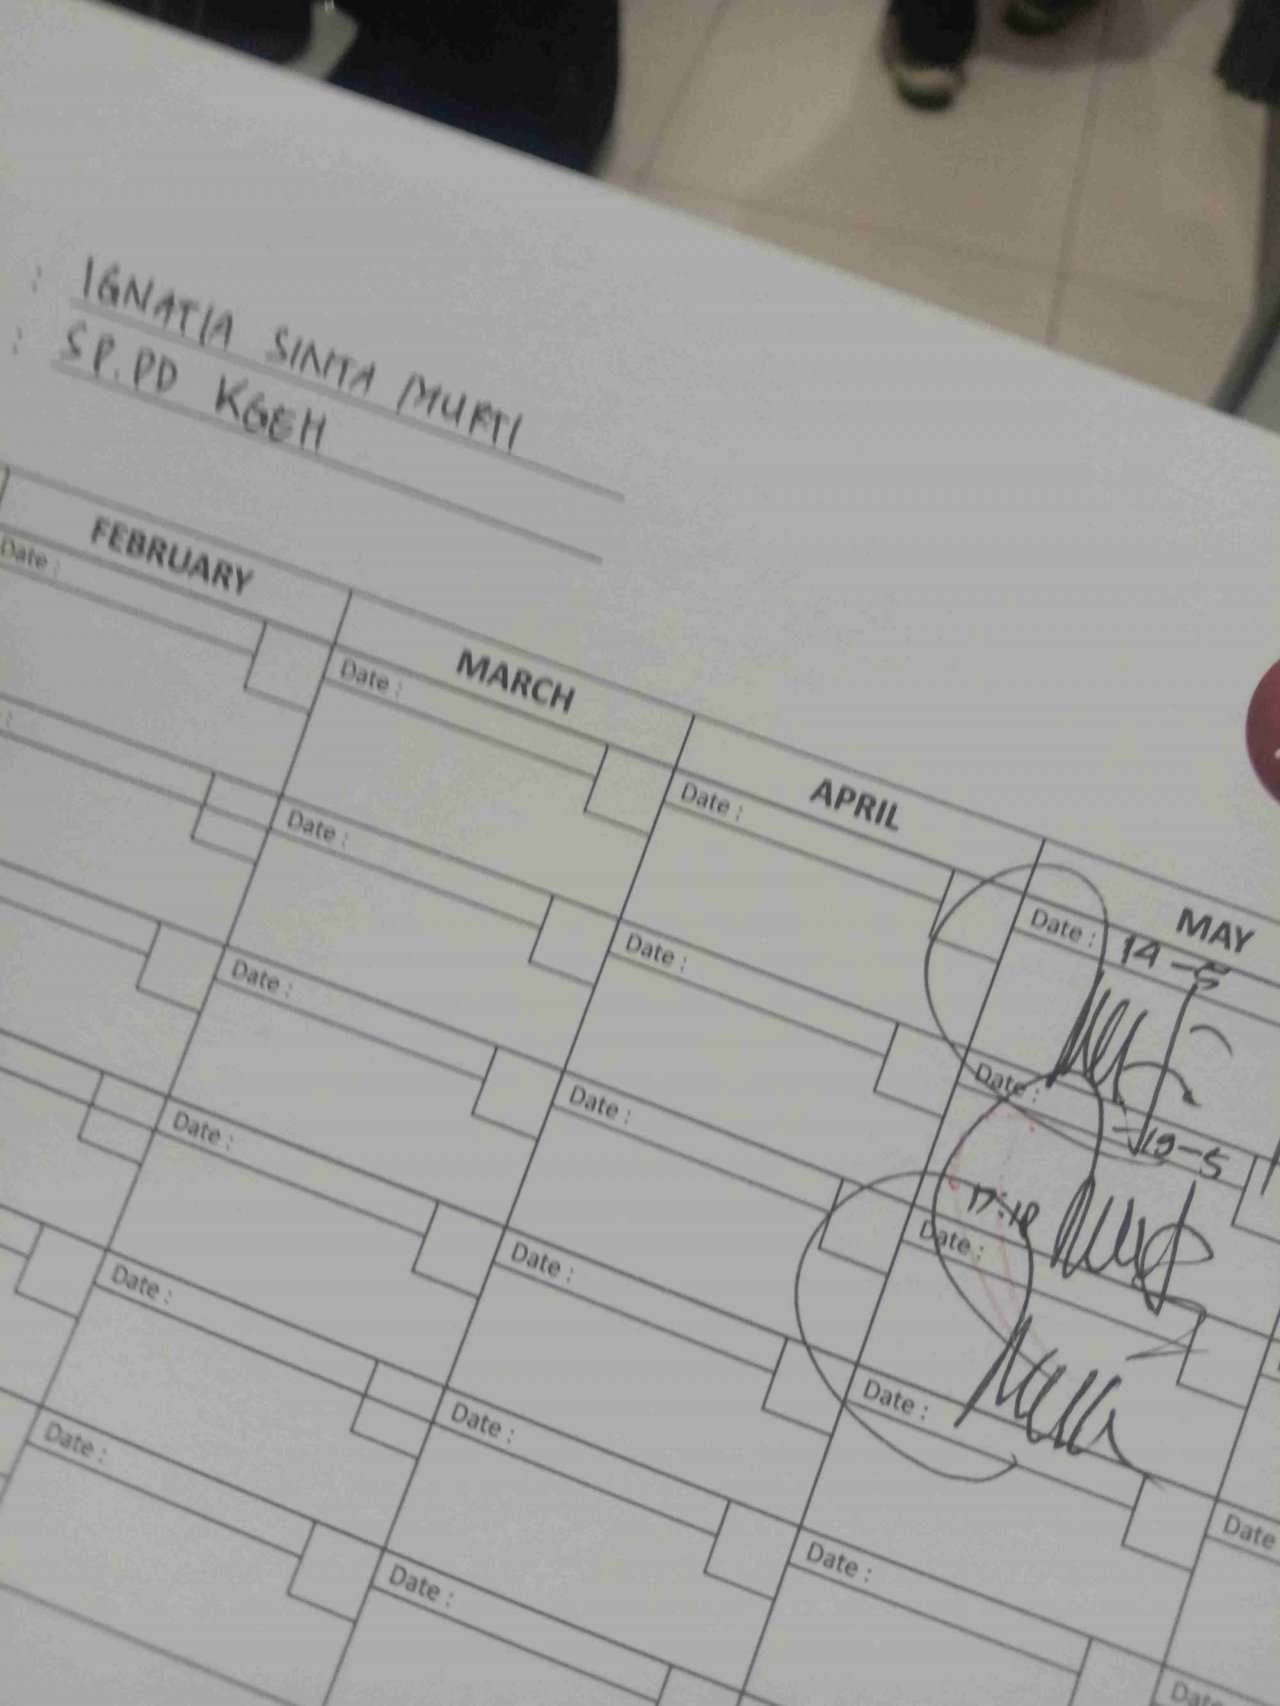 : IGNATIA SINTA MURTI
: SP.PD KGEH
FEBRUARY
MARCH
APRIL
MAY
Date :
Date :
Date :
Date : 14-5
Date :
Date :
Date :
19-5
Date :
Date :
17:10
Date :
Date :
Date :
Date :
Date :
Date :
Date :
Date :
Date :
Date
Date :